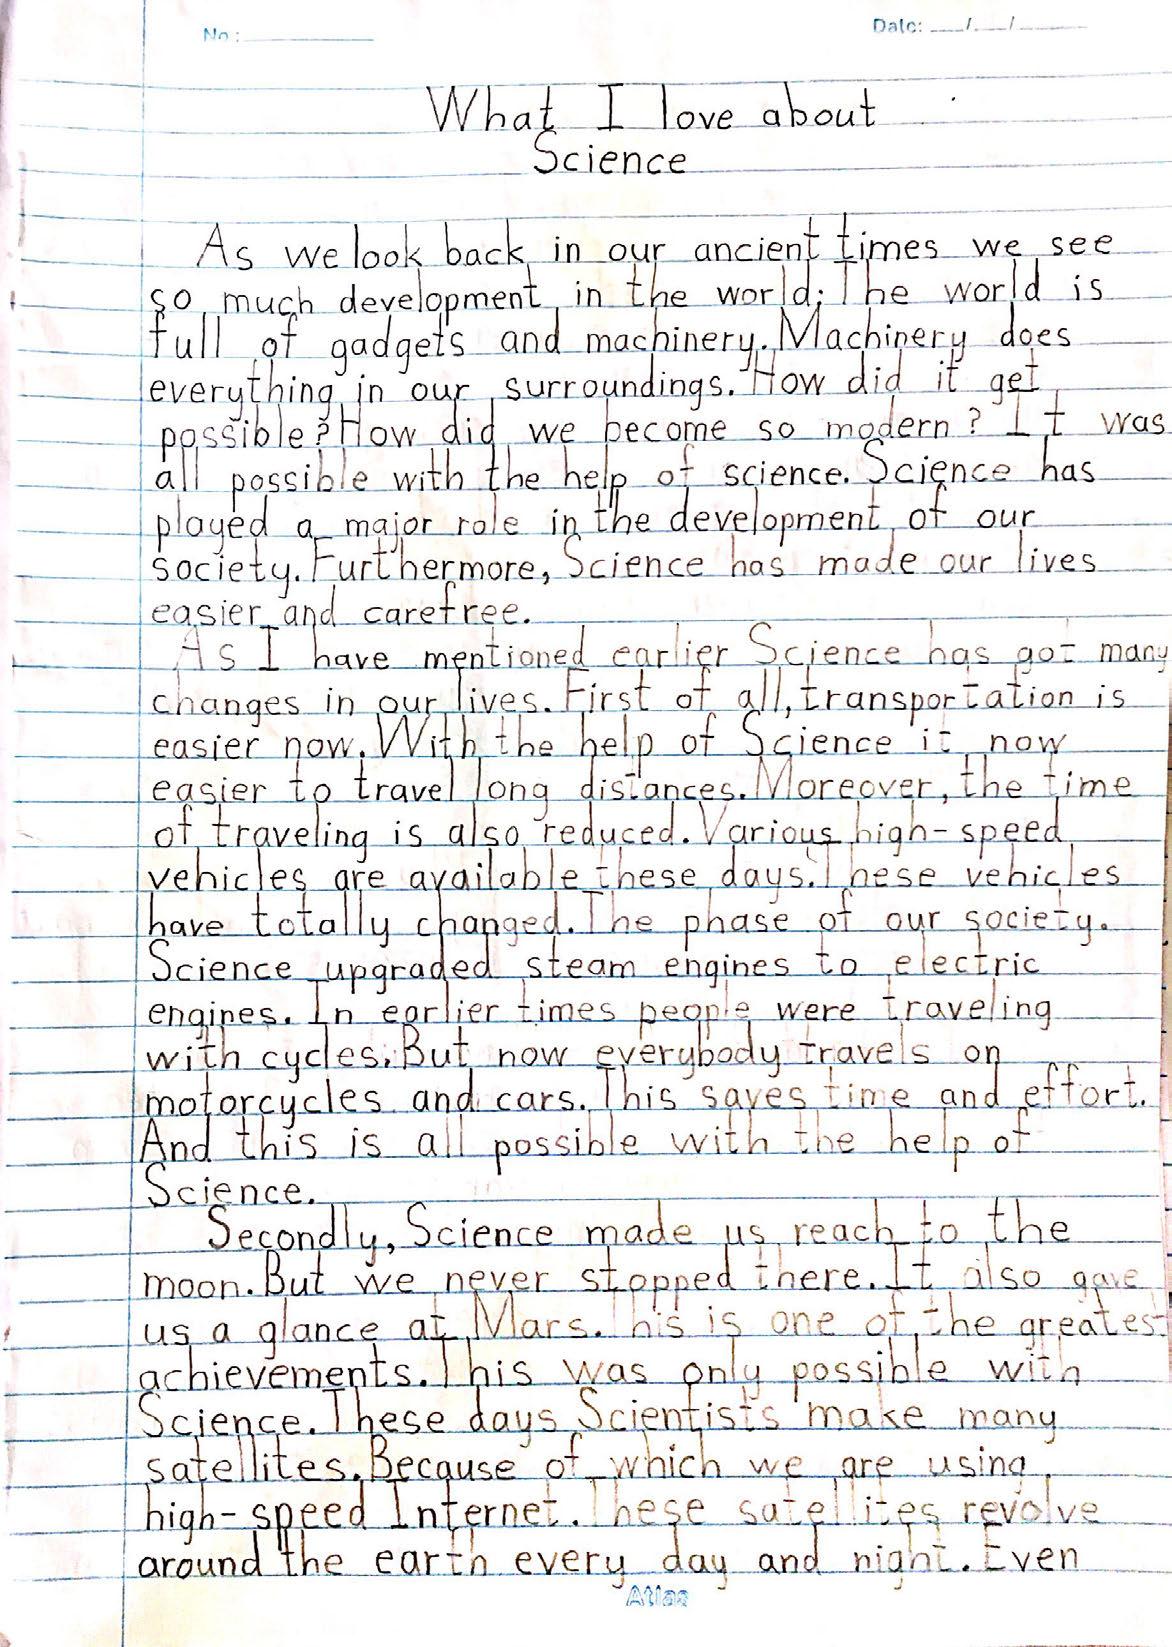 No:
Date: __/__/__
What I love about
Science
As we look back in our ancient times we see
so much development in the world. The world is
full of gadgets and machinery. Machinery does
everything in our surroundings. How did it get
possible? How did we become so modern? It was
all possible with the help of science. Science has
played a major role in the development of our
society. Furthermore, Science has made our lives
easier and carefree.
As I have mentioned earlier Science has got many
changes in our lives. First of all, transportation is
easier now. With the help of Science it now
easier to travel long distances. Moreover, the time
of traveling is also reduced. Various high-speed
vehicles are available these days. These vehicles
have totally changed. The phase of our society.
Science upgraded steam engines to electric
engines. In earlier times people were traveling
with cycles. But now everybody travels on
motorcycles and cars. This saves time and effort.
And this is all possible with the help of
Science.
Secondly, Science made us reach to the
moon. But we never stopped there. It also gave
us a glance at Mars. This is one of the greatest
achievements. This was only possible with
Science. These days Scientists make many
satellites. Because of which we are using
high-speed Internet. These satellites revolve
around the earth every day and night. Even
Atlas